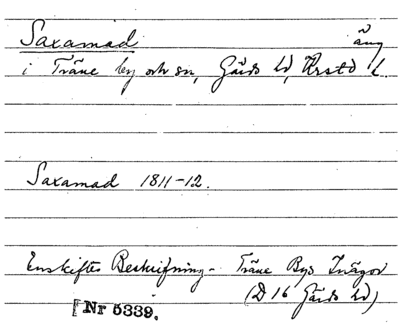 Saxamad äng
i Träne by och sn, Gärds hd, Krstd l.
Saxamad 1811-12.
Enskiftes Beskrifning - Träne Bys Inägor
(D 16 Gärds hd)
[Nr 5339.